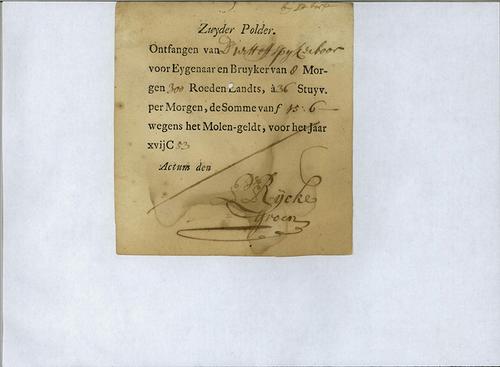 Zuyder Polder.
Ontfangen van
voor Eygenaar en Bruyker van 8 Mor-
gen 300 Roeden Landts, à 36 Stuyv.
per Morgen, de Somme van ƒ 15:6
wegens het Molen-geldt, voor het Jaar
xvijC 53
Actum den
Rijcke
Groen